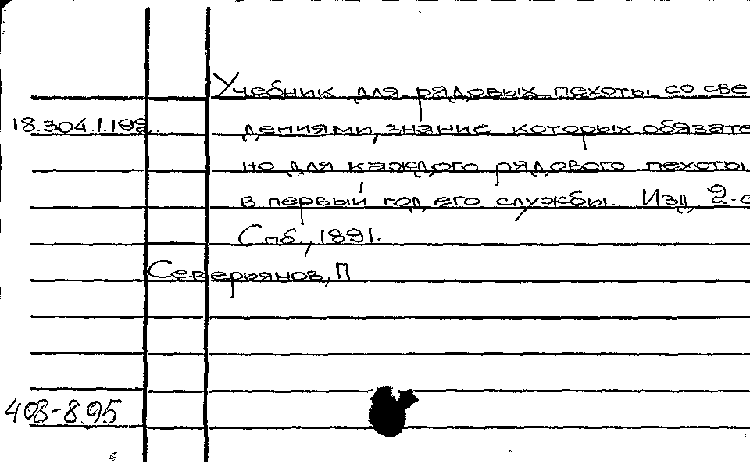 Учебник для рядовых пехоты со све
18.304.1.199.
дениями, знание которых обязате
но для каждого рядового пехоты
в первый год его службы. Изд. 2-е
Спб., 1891.
Северьянов, П
408-895